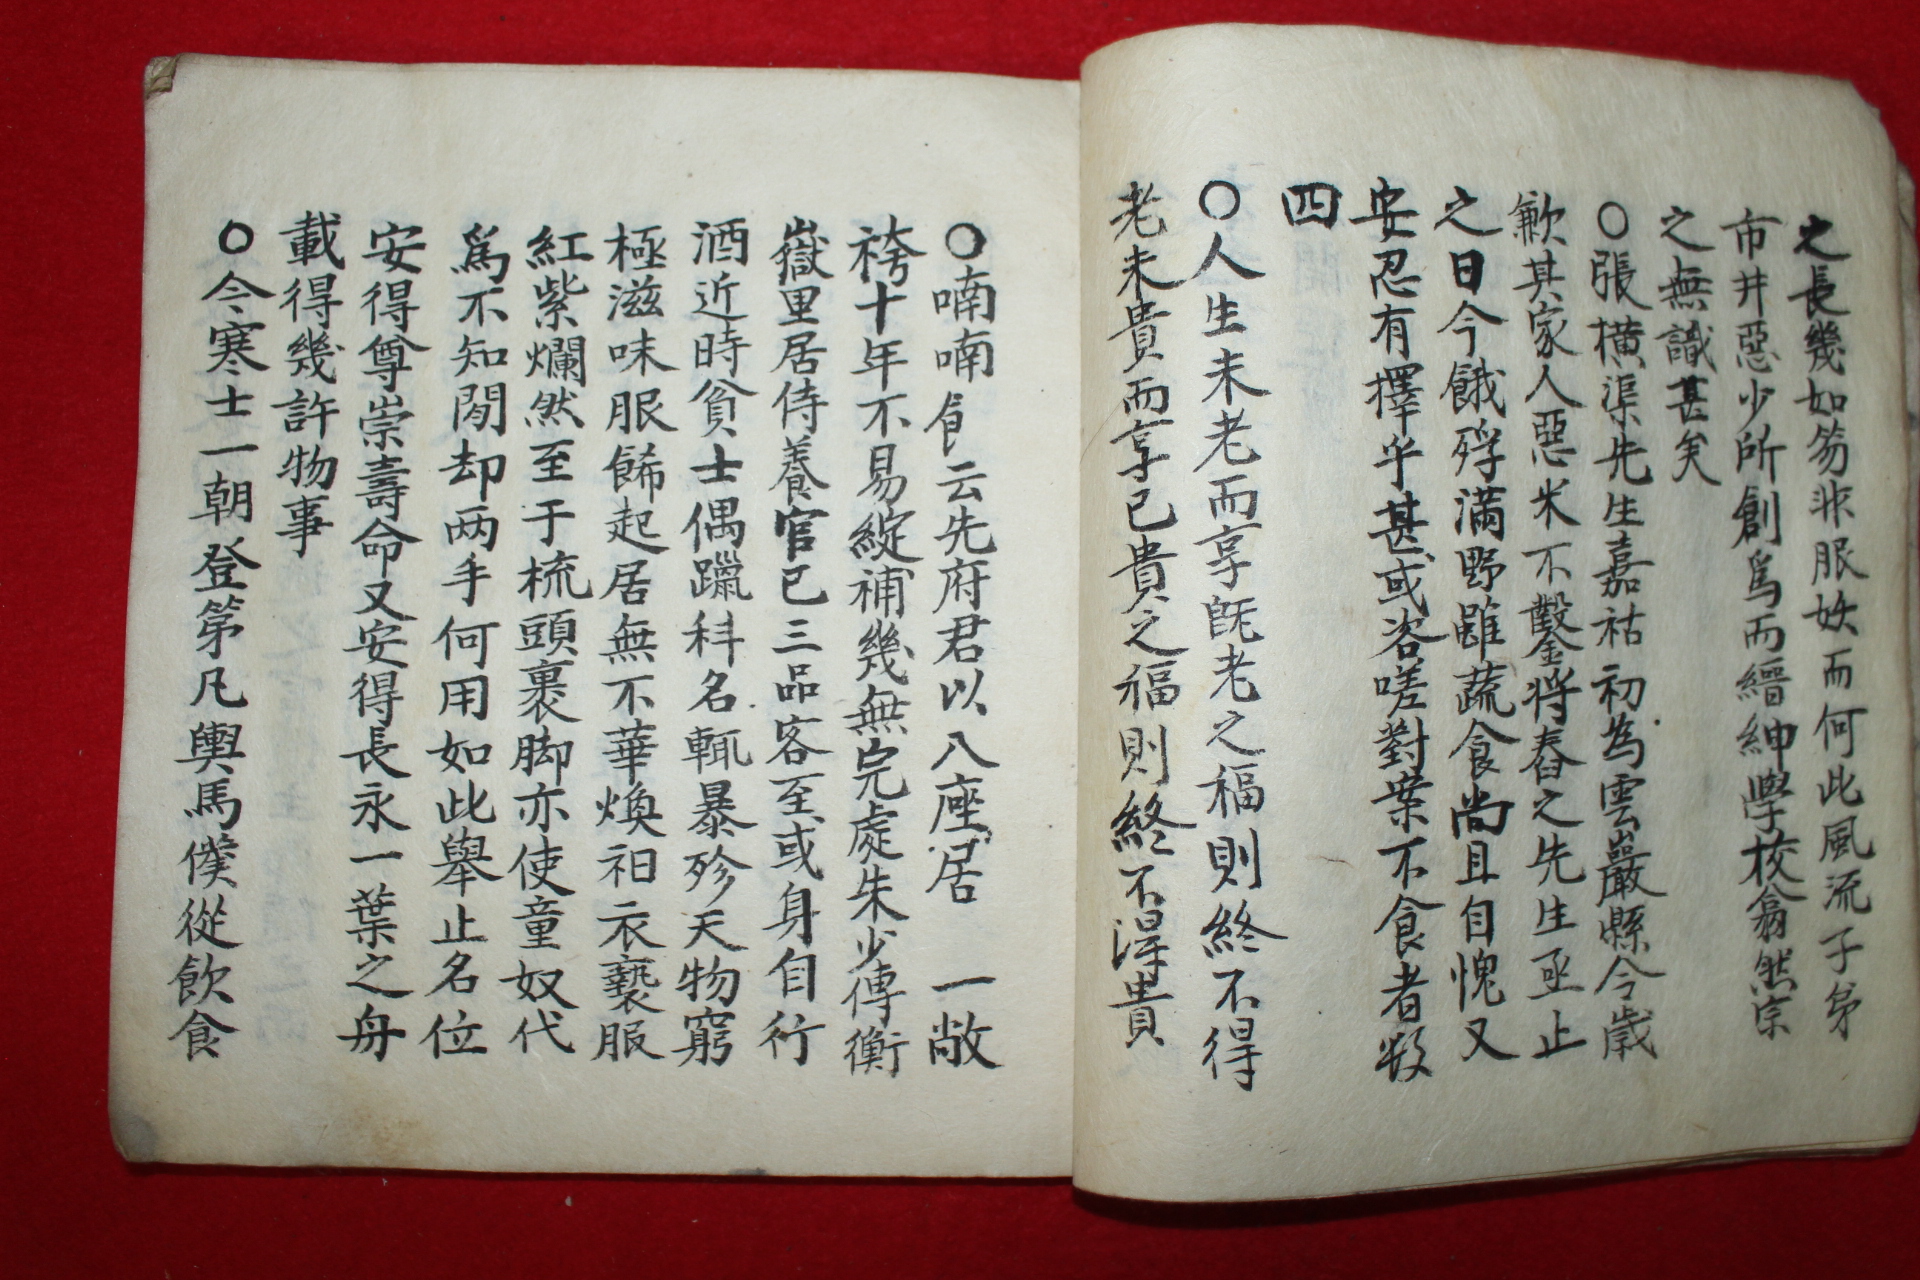 之長幾如笏非服妖而何此風流子弟
市井惡少所創爲而縉紳學校翕然宗
之無識甚矣
○張橫渠先生嘉祐初為雲巖縣令歲
歉其家人惡米不鑿將舂之先生亟止
之日今餓殍滿野雖蔬食尚且自愧又
安忍有擇乎甚或咨嗟對案不食者數
四
○人生未老而享旣老之福則終不得
老未貴而享已貴之福則終不得貴
○喃喃食云先府君以八座居一敝
袴十年不易綻補幾無完處朱少傅衡
嶽里居侍養官已三品客至或身自行
酒近時貧士偶躐科名輒暴殄天物窮
極滋味服餙起居無不華煥衵衣褻服
紅紫爛然至于梳頭裹脚亦使童奴代
爲不知閒却两手何用如此舉止名位
安得尊崇壽命又安得長永一葉之舟
載得幾許物事
○今寒士一朝登第凡輿馬僕從飲食